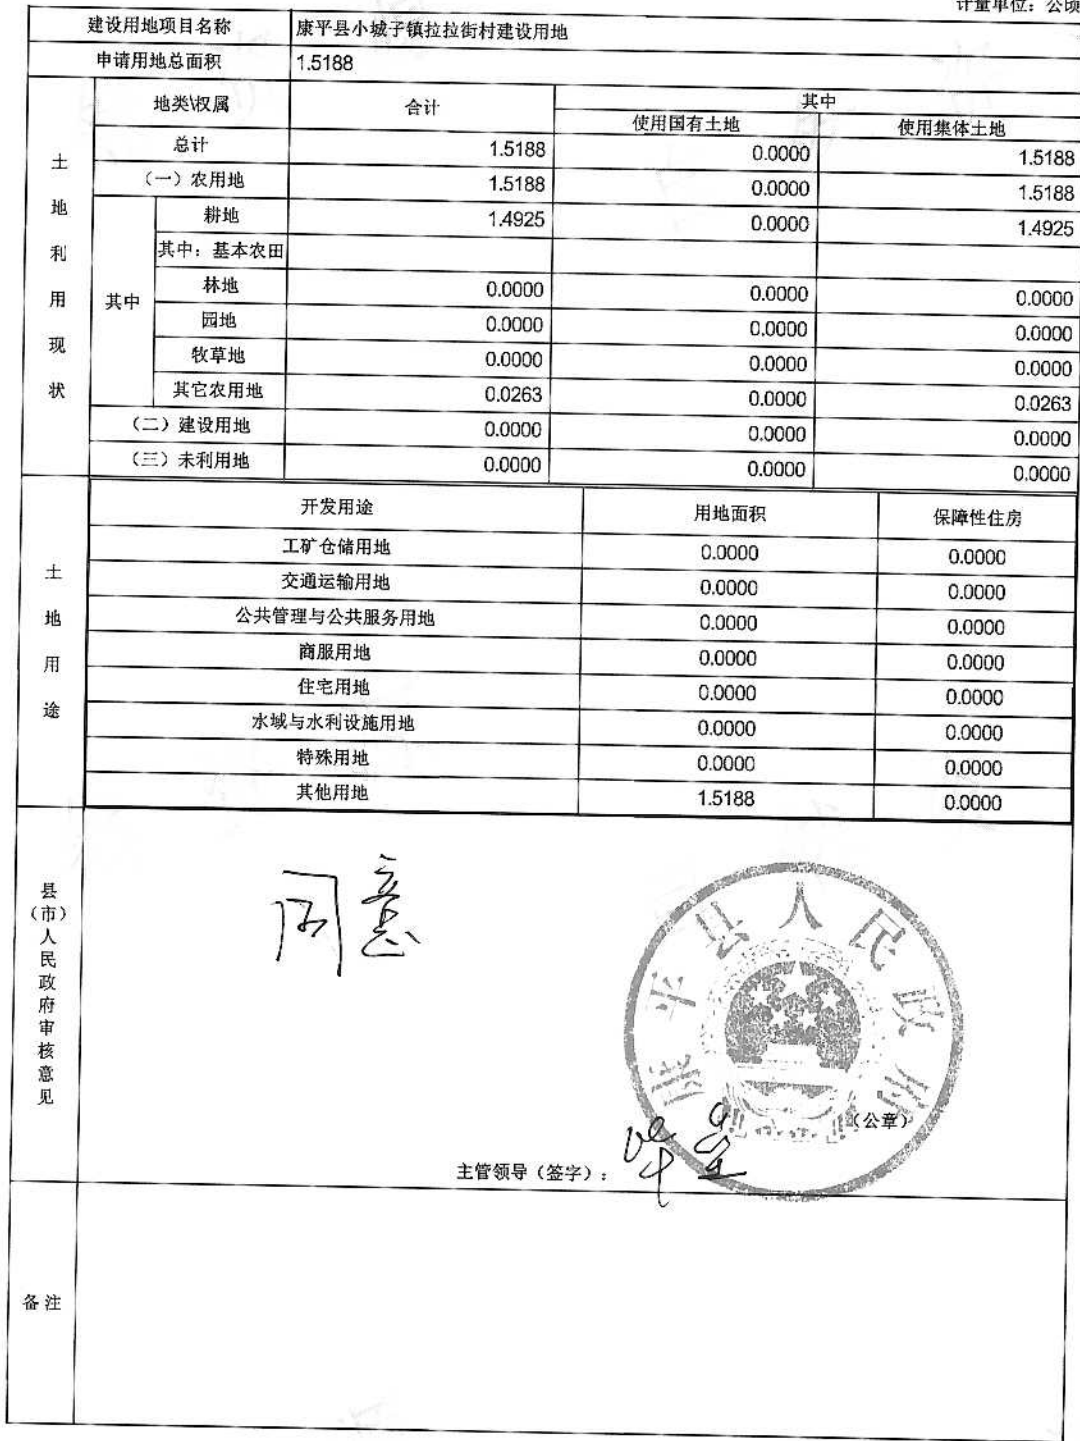 计量单位：公顷
建设用地项目名称 康平县小城子镇拉拉街村建设用地
申请用地总面积 1.5188
土地利用现状
地类\权属 合计 其中
使用国有土地 使用集体土地
总计 1.5188 0.0000 1.5188
（一）农用地 1.5188 0.0000 1.5188
其中
耕地 1.4925 0.0000 1.4925
其中：基本农田
林地 0.0000 0.0000 0.0000
园地 0.0000 0.0000 0.0000
牧草地 0.0000 0.0000 0.0000
其它农用地 0.0263 0.0000 0.0263
（二）建设用地 0.0000 0.0000 0.0000
（三）未利用地 0.0000 0.0000 0.0000
土地用途
开发用途 用地面积 保障性住房
工矿仓储用地 0.0000 0.0000
交通运输用地 0.0000 0.0000
公共管理与公共服务用地 0.0000 0.0000
商服用地 0.0000 0.0000
住宅用地 0.0000 0.0000
水域与水利设施用地 0.0000 0.0000
特殊用地 0.0000 0.0000
其他用地 1.5188 0.0000
县（市）人民政府审核意见
同意
康平县人民政府
（公章）
主管领导（签字）：
备注